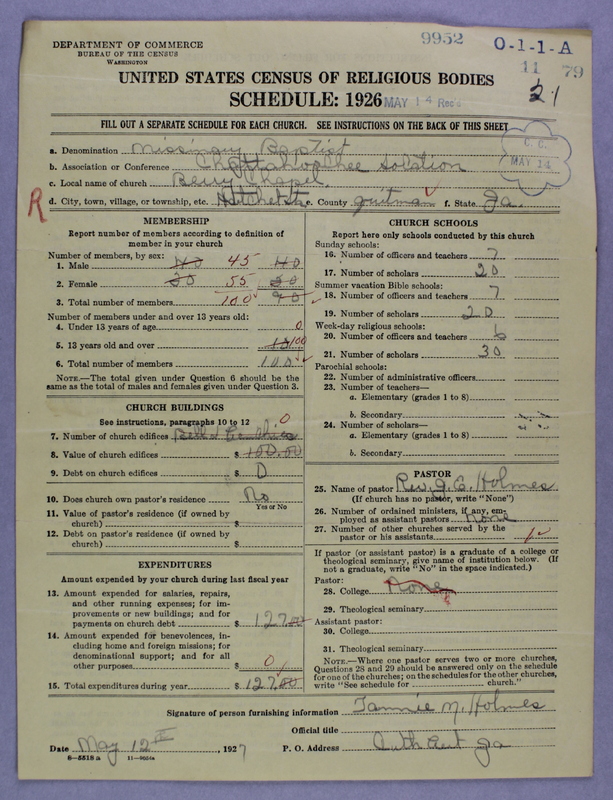 DEPARTMENT OF COMMERCE
BUREAU OF THE CENSUS
WASHINGTON
9952 O-1-1-A
11 79
UNITED STATES CENSUS OF RELIGIOUS BODIES
SCHEDULE: 1926 MAY 14 Rec'd 21
FILL OUT A SEPARATE SCHEDULE FOR EACH CHURCH. SEE INSTRUCTIONS ON THE BACK OF THIS SHEET
C. C. MAY 14
a. Denomination Baptist
b. Association or Conference
c. Local name of church Berry Chapel
R d. City, town, village, or township, etc. e. County quitman f. State Ga.
MEMBERSHIP
Report number of members according to definition of
member in your church
Number of members, by sex:
1. Male 40 45 40
2. Female 55
3. Total number of members 100 90
Number of members under and over 13 years old:
4. Under 13 years of age 0
5. 13 years old and over 100
6. Total number of members 100
NOTE.—The total given under Question 6 should be the
same as the total of males and females given under Question 3.
CHURCH BUILDINGS
See instructions, paragraphs 10 to 12 0
7. Number of church edifices
8. Value of church edifices $ 100.00
9. Debt on church edifices $ 0
10. Does church own pastor's residence No
Yes or No
11. Value of pastor's residence (if owned by
church) $
12. Debt on pastor's residence (if owned by
church) $
EXPENDITURES
Amount expended by your church during last fiscal year
13. Amount expended for salaries, repairs,
and other running expenses; for im-
provements or new buildings; and for
payments on church debt $ 127.00
14. Amount expended for benevolences, in-
cluding home and foreign missions; for
denominational support; and for all
other purposes $ 0
15. Total expenditures during year $ 127.00
CHURCH SCHOOLS
Report here only schools conducted by this church
Sunday schools:
16. Number of officers and teachers 7
17. Number of scholars 20
Summer vacation Bible schools:
18. Number of officers and teachers 7
19. Number of scholars 20
Week-day religious schools:
20. Number of officers and teachers 6
21. Number of scholars 30
Parochial schools:
22. Number of administrative officers
23. Number of teachers—
a. Elementary (grades 1 to 8)
b. Secondary
24. Number of scholars—
a. Elementary (grades 1 to 8)
b. Secondary
PASTOR
25. Name of pastor Rev. J. E. Holmes
(If church has no pastor, write "None")
26. Number of ordained ministers, if any, em-
ployed as assistant pastors None
27. Number of other churches served by the
pastor or his assistants 1
If pastor (or assistant pastor) is a graduate of a college or
theological seminary, give name of institution below. (If
not a graduate, write "No" in the space indicated.)
Pastor:
28. College None
29. Theological seminary
Assistant pastor:
30. College
31. Theological seminary
NOTE.—Where one pastor serves two or more churches,
Questions 28 and 29 should be answered only on the schedule
for one of the churches; on the schedules for the other churches,
write "See schedule for church."
Signature of person furnishing information Tannie M. Holmes
Official title
Date May 12, 1927 P. O. Address Cuthbert Ga
8—5518 a 11—9654a